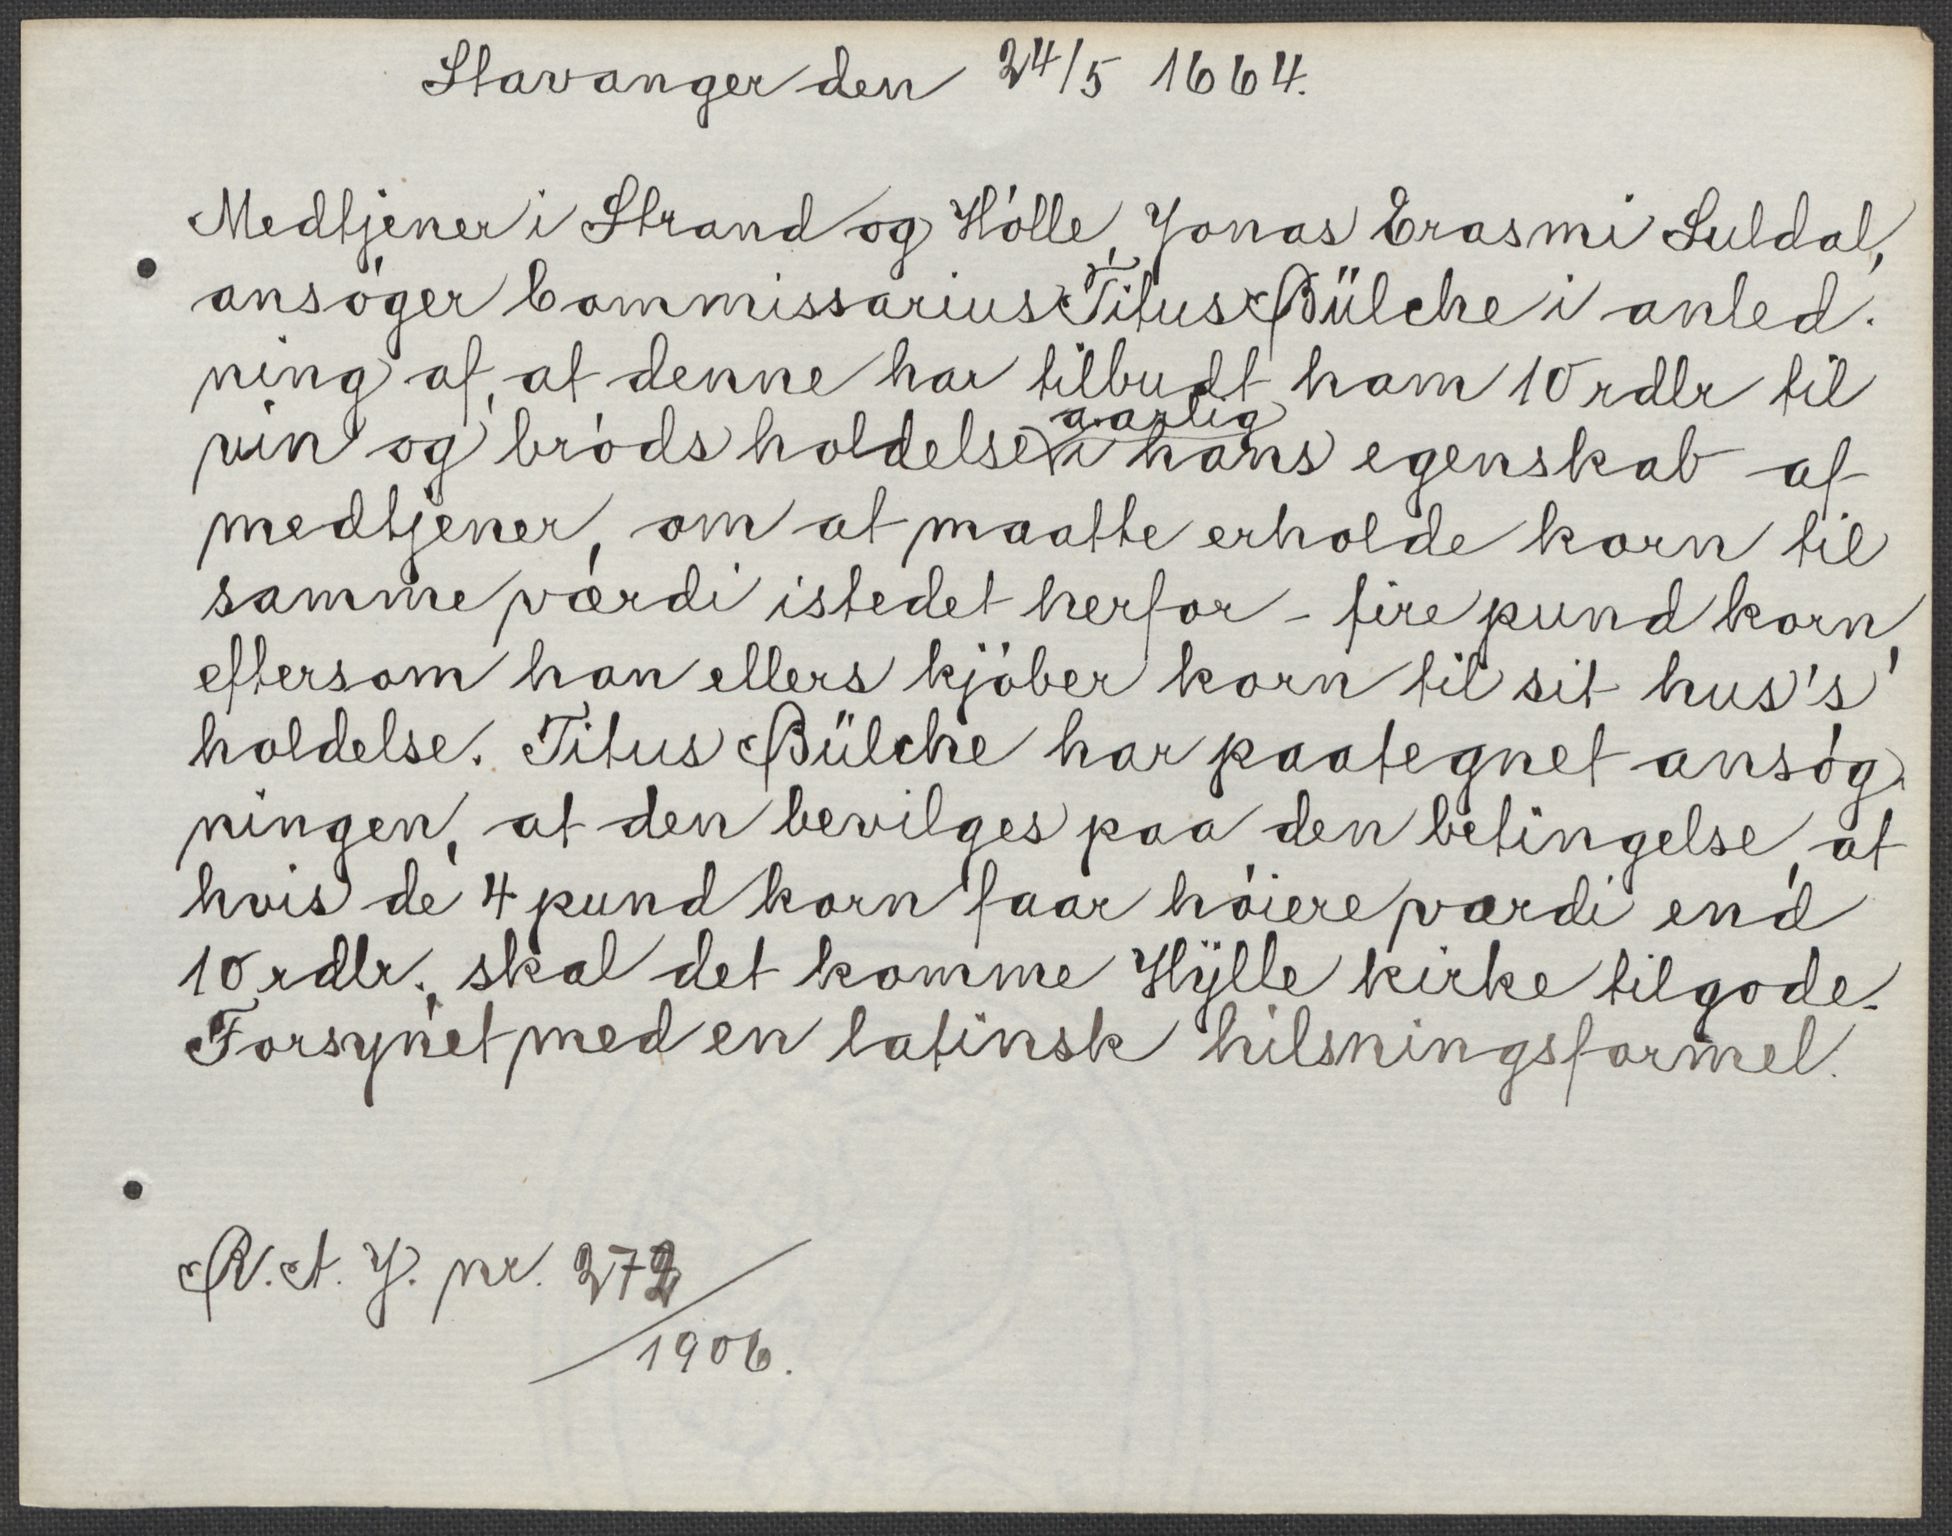 Stavanger den 24/5 1664.
Medtjener i Strand og Hólle, Jonas Erasmi Suldal,
ansóger Commissarius Titus Bülche i anled-
ning af, at denne har tilbudt ham 10 rdlr til
vin og bróds holdelse aarlig i hans egenskab af
medtjener, om at maatte erholde korn til
samme værdi istedet herfor - fire pund korn,
eftersom han ellers kjóber korn til sit hus's
holdelse. Titus Bülche har paategnet ansóg-
ningen, at den bevilges paa den betingelse, at
hvis de 4 pund korn faar hóiere værdi end
10 rdlr., skal det komme Hÿlle kirke tilgode.
Forsynet med en latinsk hilsningsformel.
R. A. J. nr. 272/
1906.